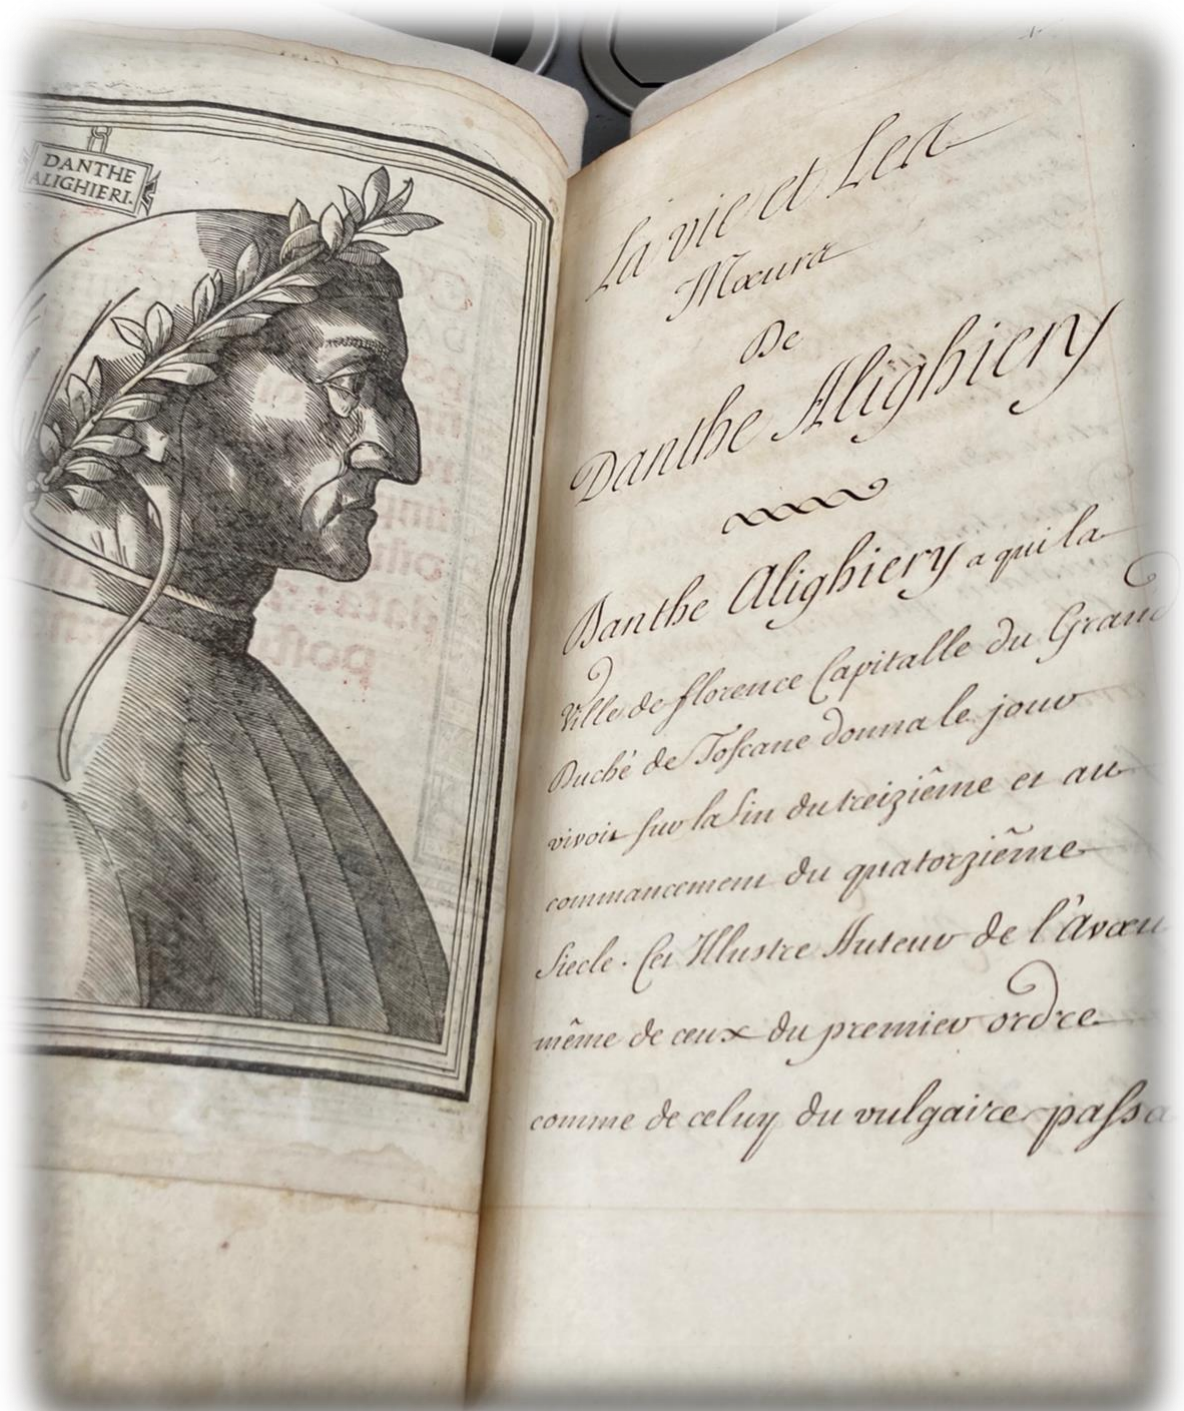 DANTHE
ALIGHIERI.
La vie et Les
Mœurs
De
Danthe Alighiery
Danthe Alighiery a qui la
Ville de florence Capitalle du Grand
Duché de Toscane donna le jour
vivoit sur la fin du treiziême et au
commancement du quatorziême
Siecle. Cet Illustre Auteur de l'Avœu
même de ceux du premier ordre
comme de celuy du vulgaire passa